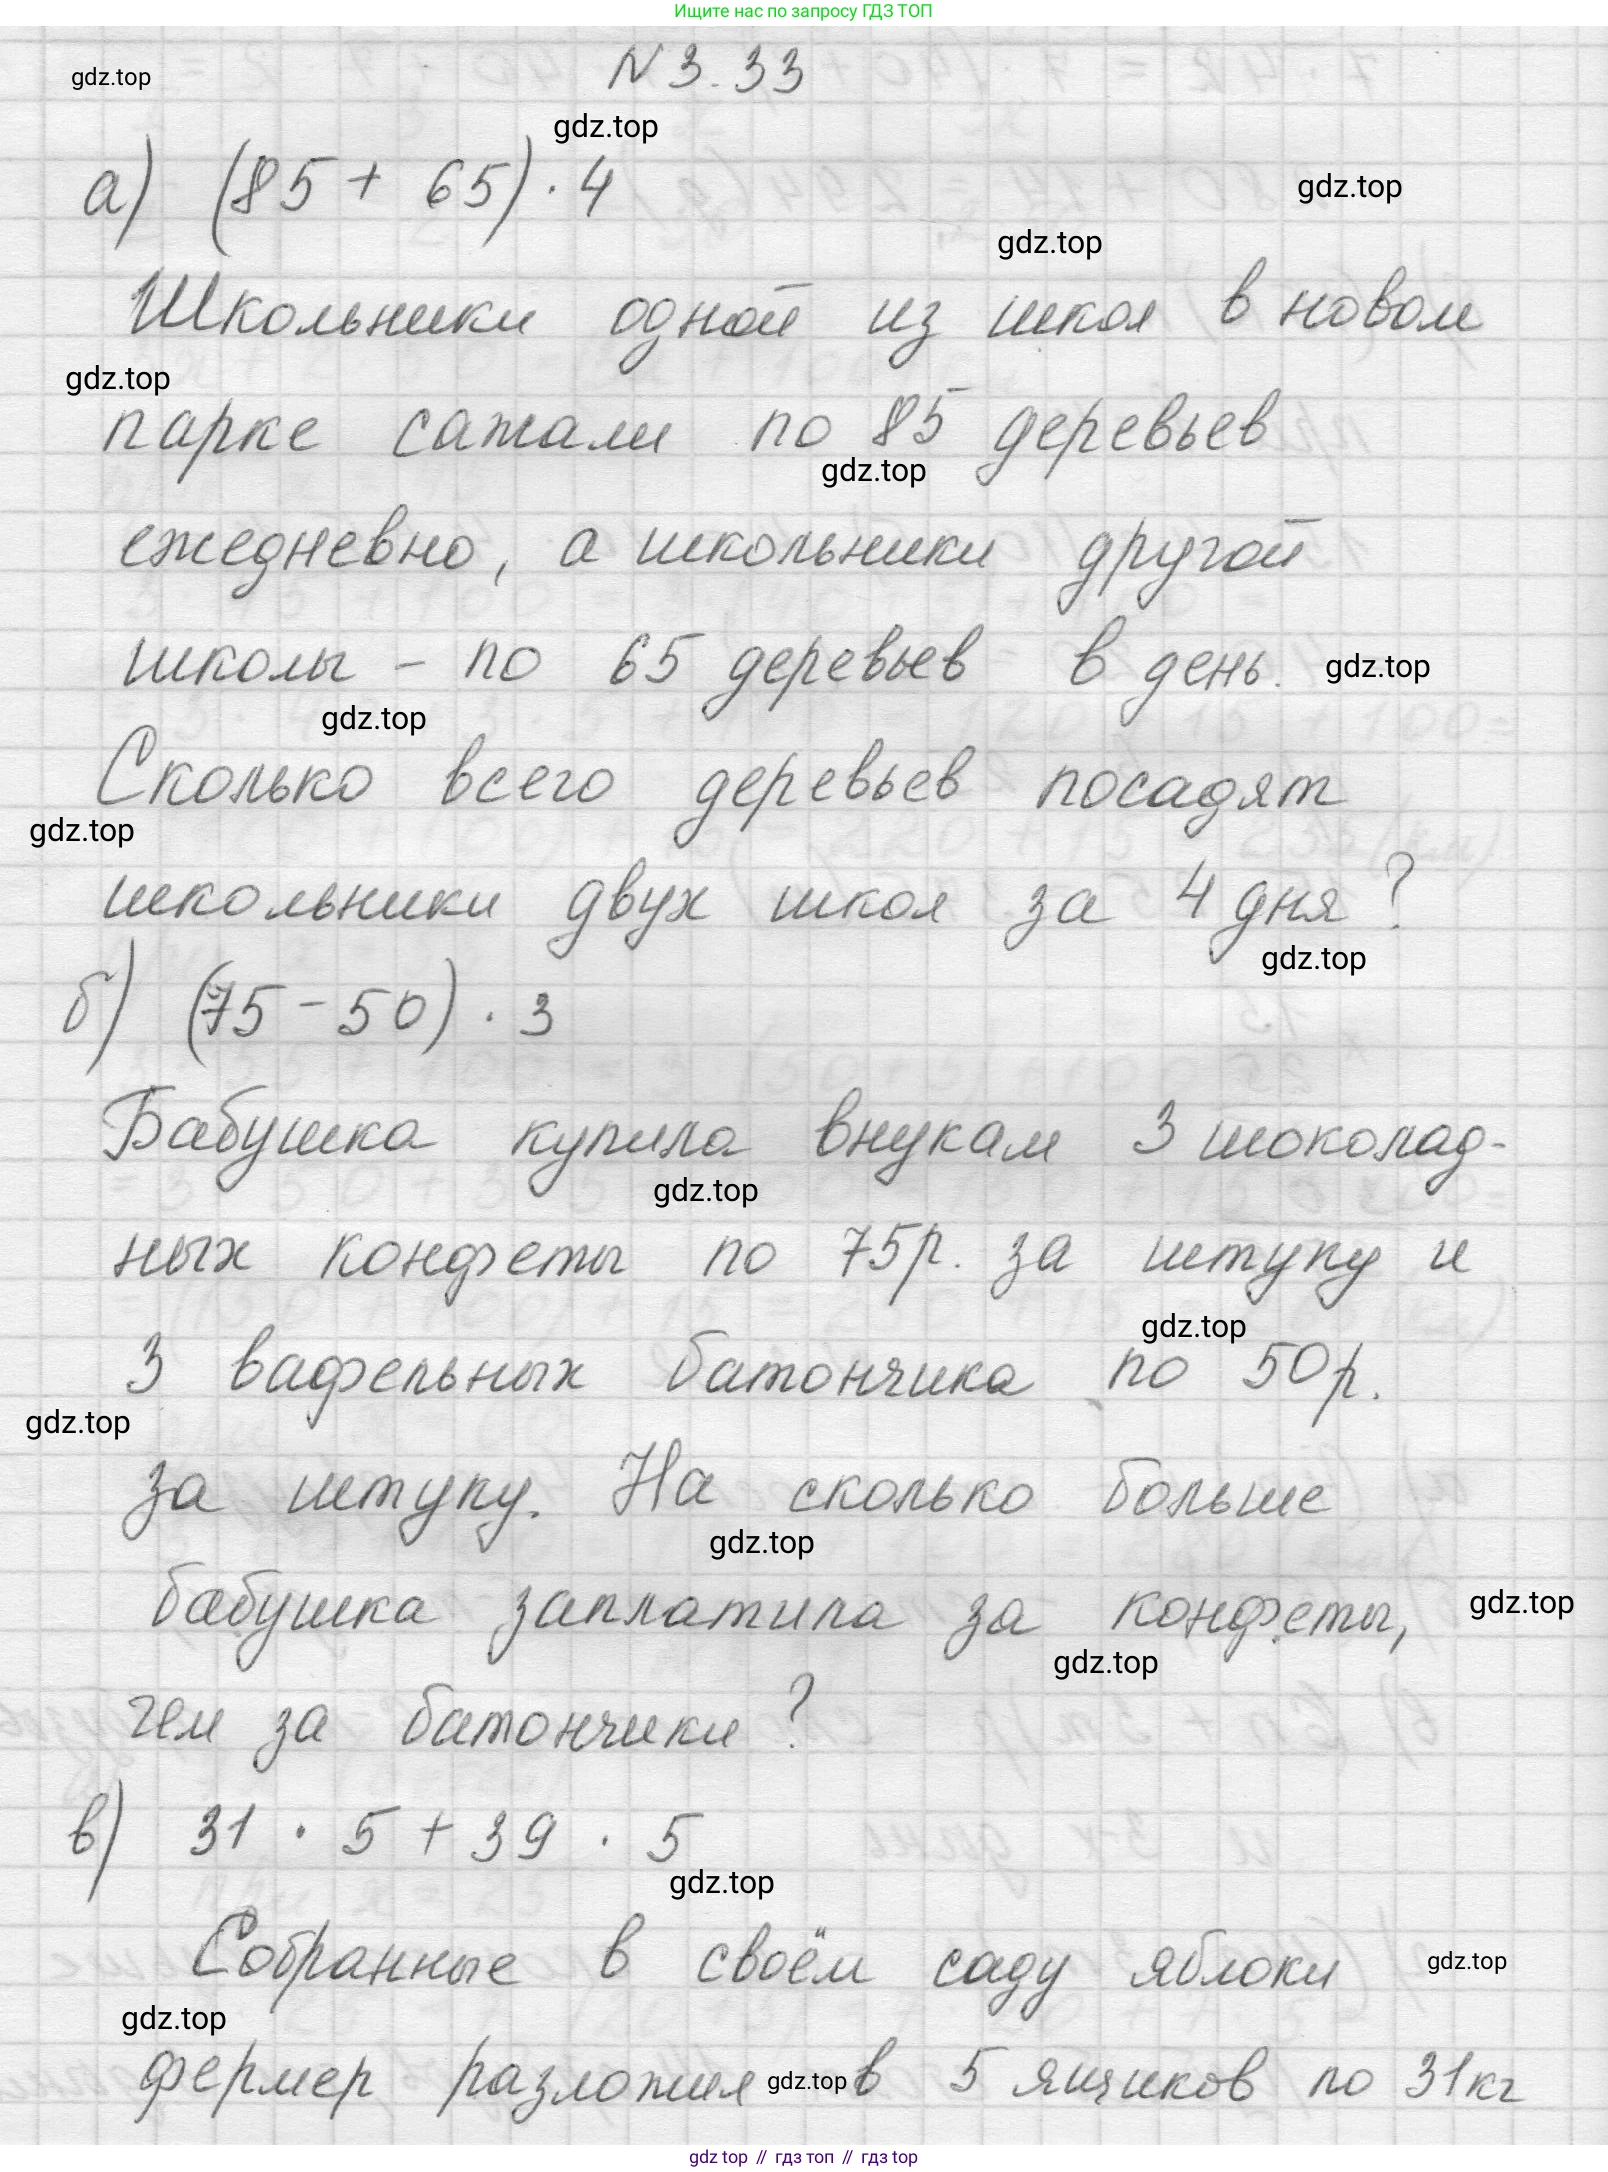 Ищите нас по запросу ГДЗ ТОП
N 3.33
gdz.top
gdz.top
а) (85 + 65) · 4
gdz.top
gdz.top
Школьники одной из школ в новом
gdz.top
парке сажали по 85 деревьев
gdz.top
ежедневно, а школьники другой
школы - по 65 деревьев в день.
gdz.top
gdz.top
Сколько всего деревьев посадят
gdz.top
школьники двух школ за 4 дня?
gdz.top
б) (75 - 50) · 3
Бабушка купила внукам 3 шоколад-
gdz.top
ных конфеты по 75р. за штуку и
gdz.top
3 вафельных батончика по 50р.
gdz.top
за штуку. На сколько больше
gdz.top
бабушка заплатила за конфеты,
gdz.top
gdz.top
чем за батончики?
в) 31 · 5 + 39 · 5
gdz.top
Собранные в своём саду яблоки
gdz.top
gdz.top
фермер разложил в 5 ящиков по 31кг
gdz.top
gdz top // гдз топ // gdz top